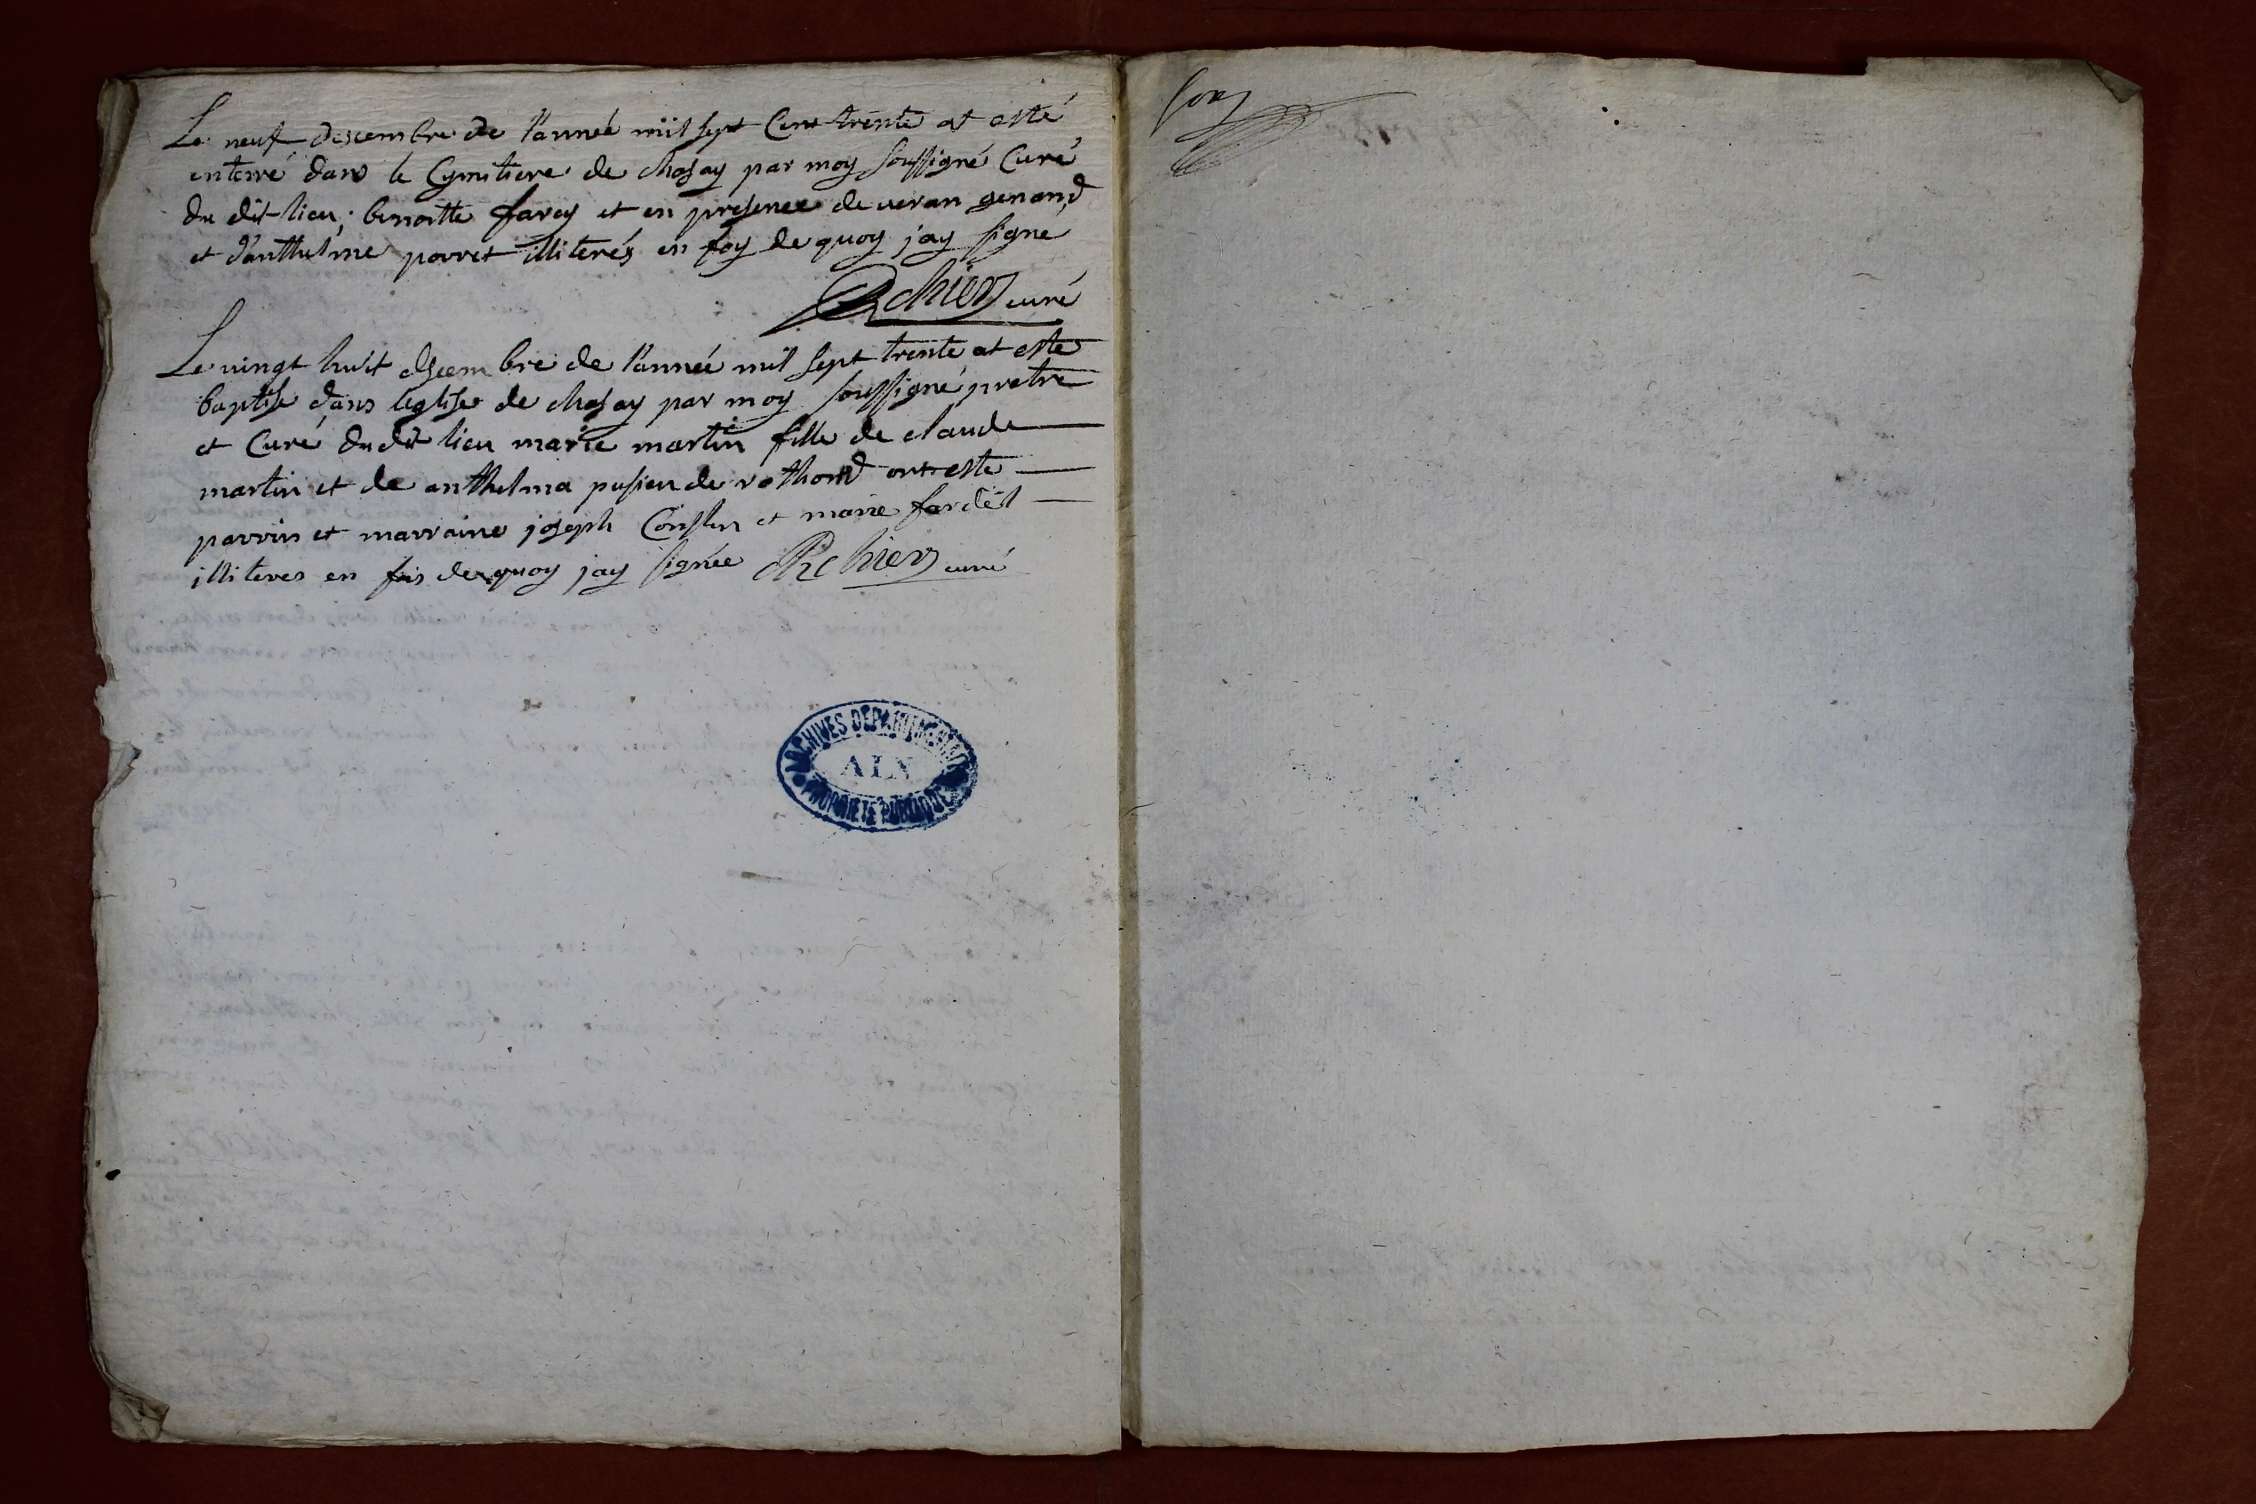 Le neuf descembre de l'année mil sept Cent trente at esté
enterré dans le Cymitiere de chasay par moy soussigné Curé
du dit lieu; benoitte farey et en presence de veran genand
et d'anthelme porret illiterés en foy de quoy j'ay signe
curé
Le vingt huit descembre de l'année mil sept trente at este
baptise dans leglise de chasay par moy soussigné pretre
et Curé du dit lieu marie martin fille de claude
martin et de anthelma de rothond ont este
parrin et marraine joseph et marie fardel
illiteres en fois de quoy jay signée curé
ARCHIVES DEPARTEMENTALES
AIN
PROPRIETE PUBLIQUE